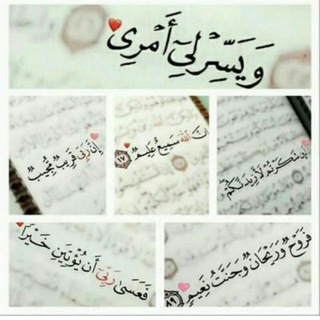 وَيَسِّرْ لِي أَمْرِي
إِنَّ رَبِّي قَرِيبٌ مُّجِيبٌ
إِنَّ اللَّهَ سَمِيعٌ عَلِيمٌ ١٧
لَئِن شَكَرْتُمْ لَأَزِيدَنَّكُمْ
فَعَسَىٰ رَبِّي أَن يُؤْتِيَنِ خَيْرًا
فَرَوْحٌ وَرَيْحَانٌ وَجَنَّتُ نَعِيمٍ ٨٩